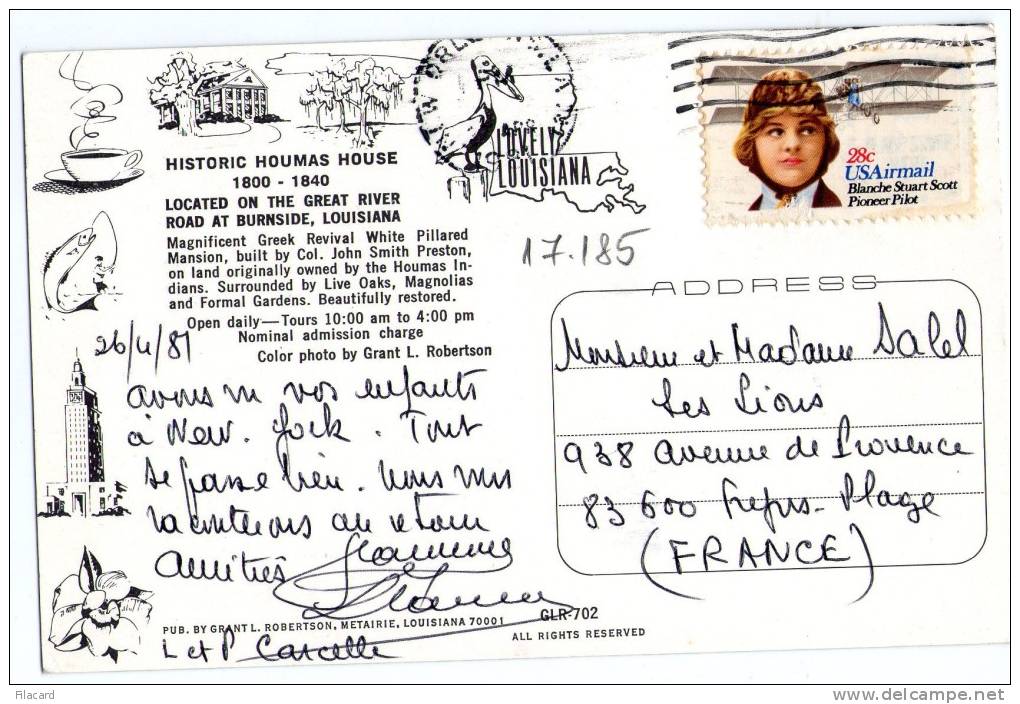 HISTORIC HOUMAS HOUSE
1800 - 1840
LOCATED ON THE GREAT RIVER
ROAD AT BURNSIDE, LOUISIANA
Magnificent Greek Revival White Pillared
Mansion, built by Col. John Smith Preston,
on land originally owned by the Houmas In-
dians. Surrounded by Live Oaks, Magnolias
and Formal Gardens. Beautifully restored.
Open daily—Tours 10:00 am to 4:00 pm
Nominal admission charge
Color photo by Grant L. Robertson
LOVELY
LOUISIANA
28c
USAirmail
Blanche Stuart Scott
Pioneer Pilot
17.185
26/4/81
avons vu vos enfants
à New. York. Tout
se passe bien. Nous vous
raconterons au retour
Amitiés
L et P Carcelle
PUB. BY GRANT L. ROBERTSON, METAIRIE, LOUISIANA 70001
GLR-702
ALL RIGHTS RESERVED
ADDRESS
Monsieur et Madame Salel
Les Lions
938 Avenue de Provence
83600 Frejus-Plage
(FRANCE)
Filacard
http://www.delcampe.net